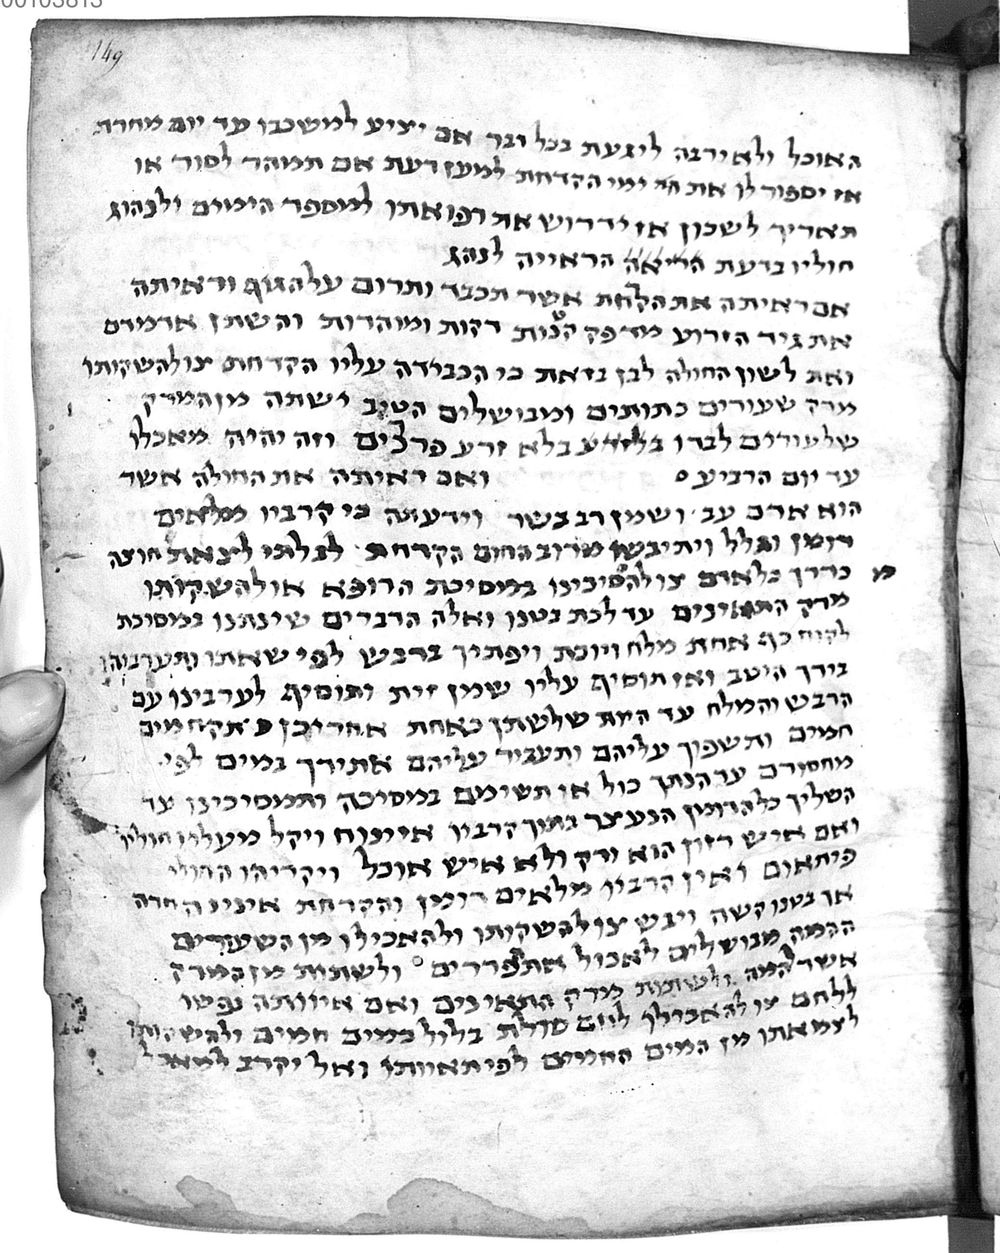 00103813
149
האוכל ולא ירבה ליגעת בכל דבר אם יציע למשכבו עד יום מחרת
אז יספור לו את ימי הקדחת למען דעת אם תמהר לסור או
תאריך לשכון אז ידרוש את רפואתו למספר הימים ולנהוג
חוליו בדעת הראייה לנהג
אם ראיתה את הקדחת אשר תכבד ותרום על הגוף וראיתה
את גיד הזרוע מדפק דקות ומוהרות והשתן אדמדם
ואת לשון החולה לבן בזאת כי הכבידה עליו הקדחת צו להשקותו
מרק שעורים כתותים ומבושלים הטיב ישתה מן המרק
שלעורים לבדו בלא זרע פרצים וזה יהיה מאכלו
עד יום הרביע ואם ראיתה את החולה אשר
הוא אדם עב ושמן רב בשר וידעתה כי קרביו מלאים
דומן וגלל ויתיבשו מרוב החום הקדחת לבלתי לצאת חוצה
כדרך כל אדם צו להמסיכינו במסיכת הרופא או להשקותו
מרק התאינים עד לכת בטנו ואלה הדברים שינתנו במסוכת
לקוח כף אחת מלח ויונת ויפתיך בדבש לפי שאתו ותערביהו
בידך היטב ואז תוסיף עליו שמן זית ותוסיף לערבינו עם
הדבש והמלח עד היות שלשתן כאחת אחרי כן תקח מים
חמים ותשפוך עליהם ותעביד עליהם את ידך במים לפי
מחסורם עד הנתך כול אז תשימם במסיכה ותמסיכינו עד
השליך כל הדומן הנעצר בתוך קרביו אז ינוח ויקל מעליו חוליו
ואם איש רזון הוא ודק ולא איש אוכל ויקריהו החולי
פיתאום ואין קרביו מלאים דומן והקדחת איניה חדה
או בטנו קשה ויבש צו להשקותו ולהאכילו מן השעורים
ההמה מבושלים לאכול את פררים ולשתות מן המרק
אשר להמה ולשתות מרק התאינים ואם איוותה נפשו
ללחם צו להאכילו לחם סולת בלול במים חמים ולהשקותו
לצמאתו מן המים החמים לפי תאוותו ואל יקרב למאכל